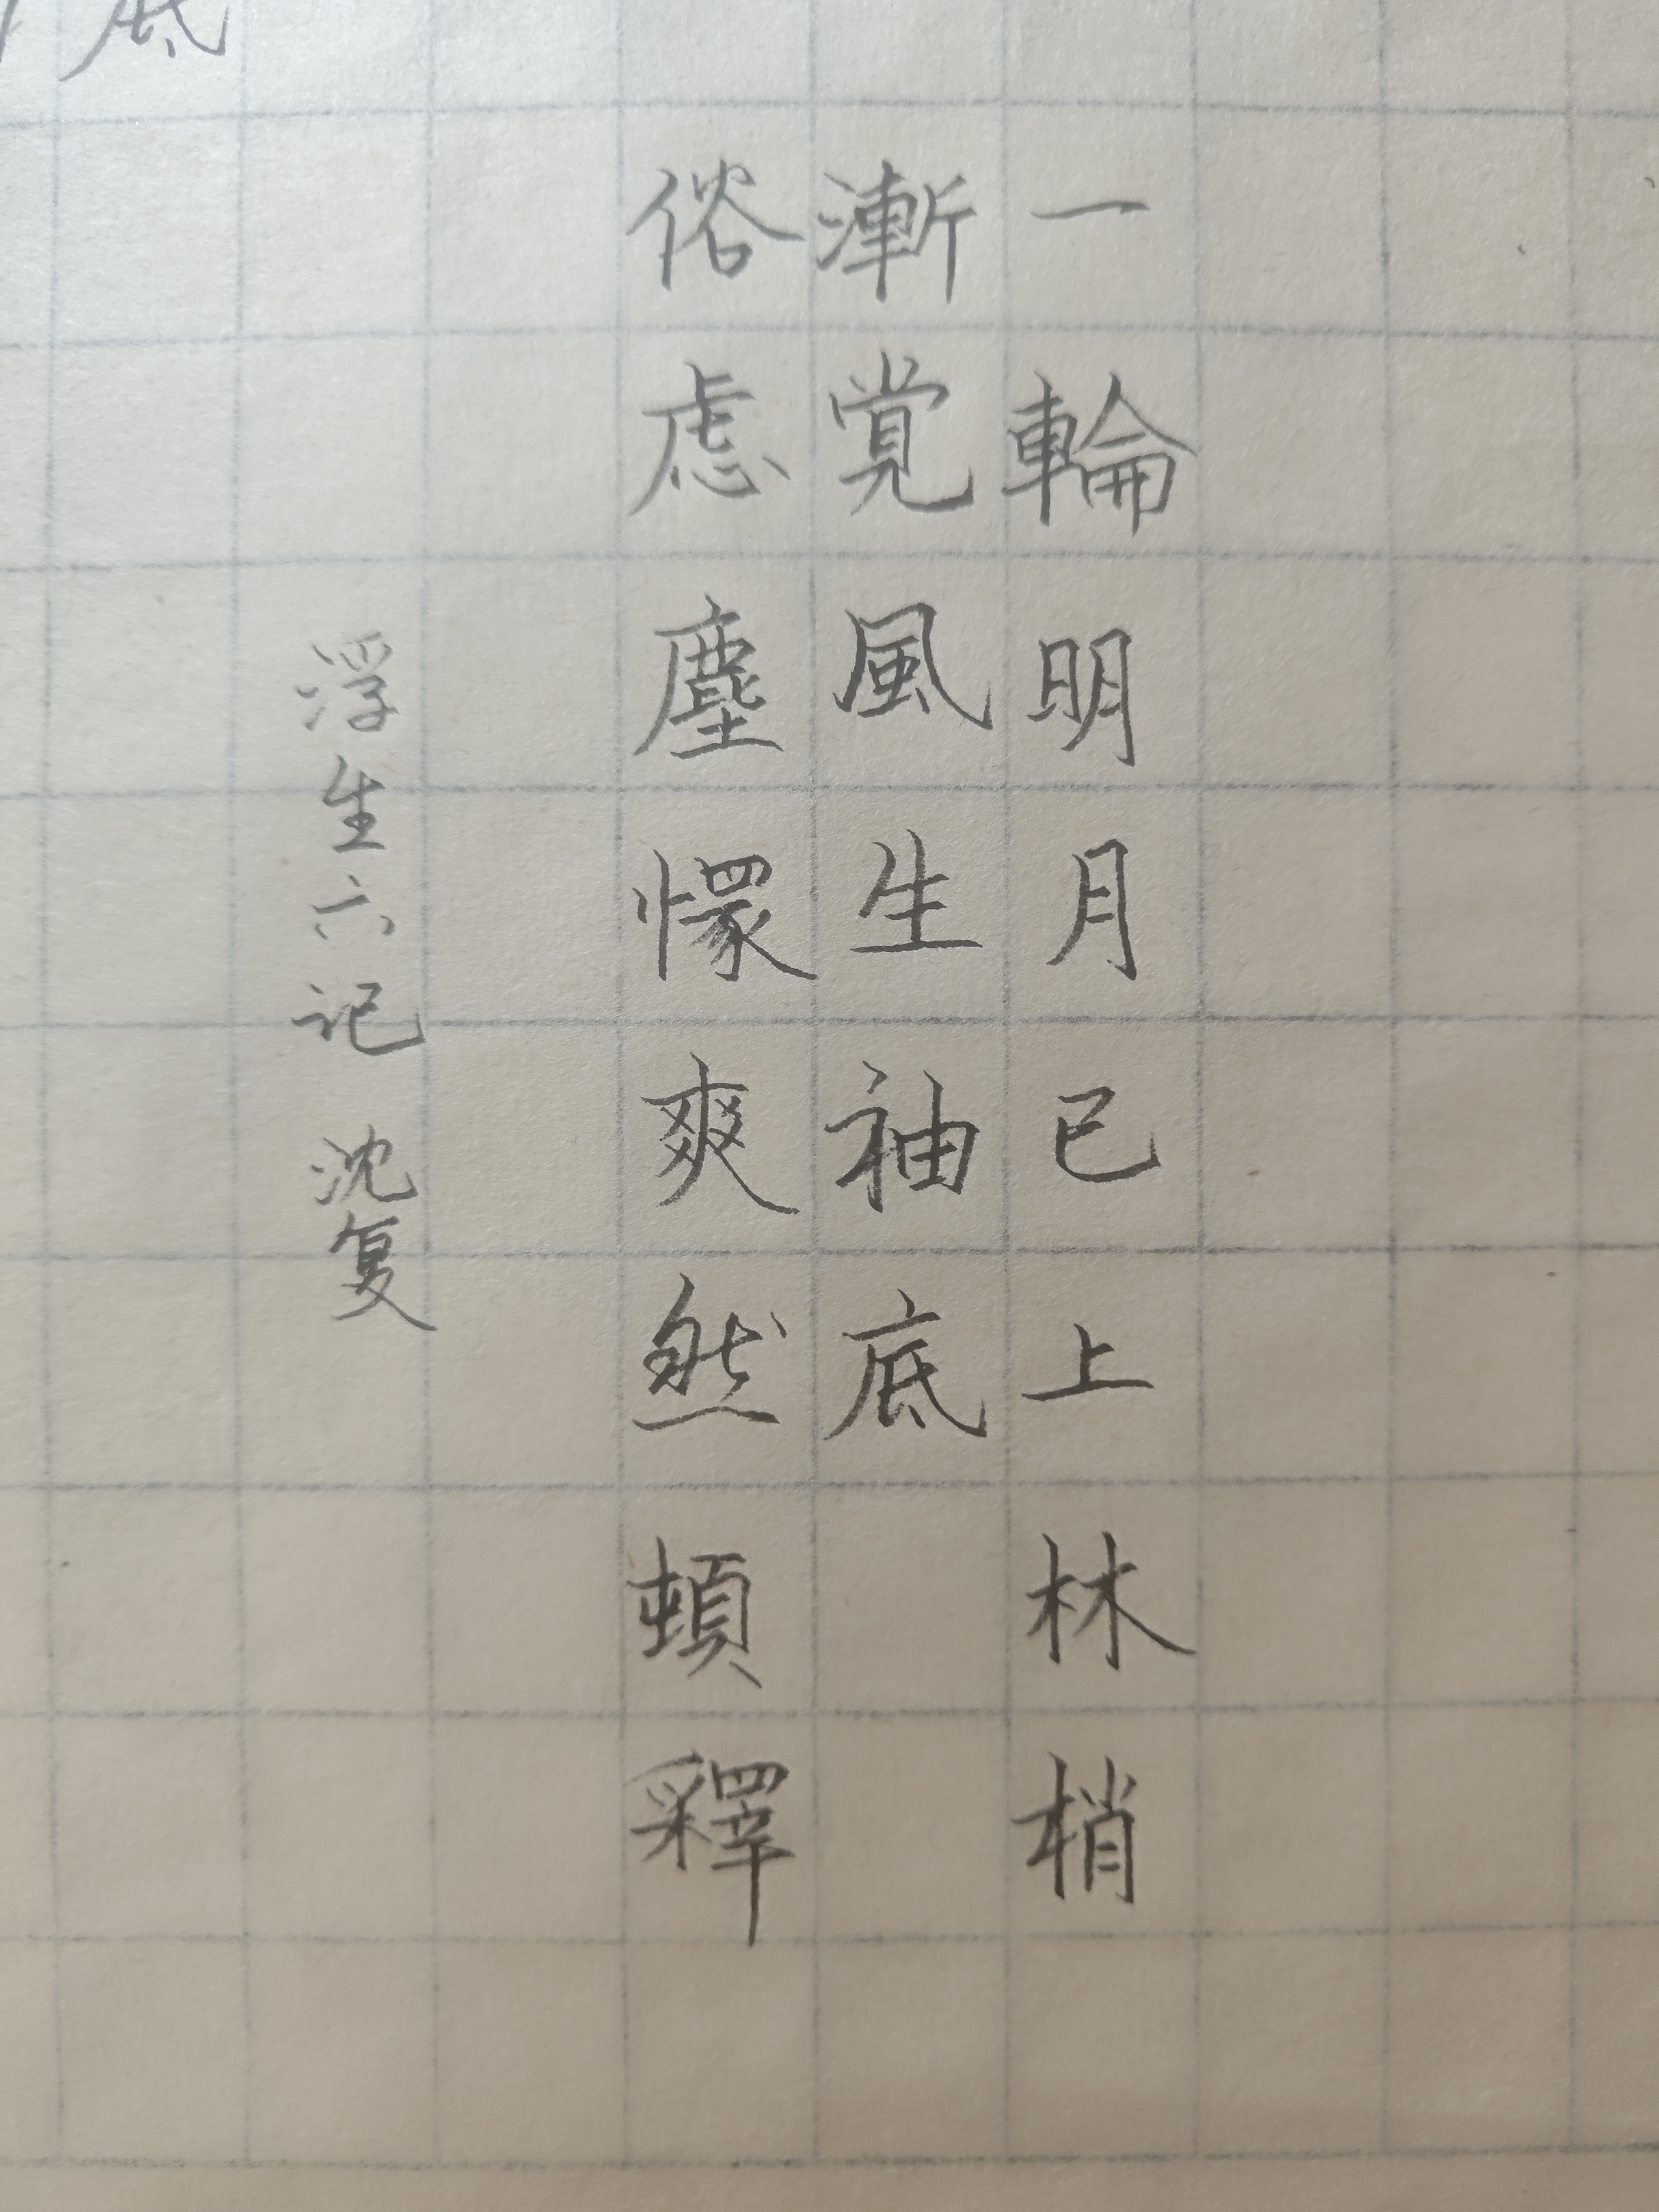 一輪明月已上林梢
漸覚風生袖底
俗虑塵懷爽然頓釋
浮生六记 沈复
底